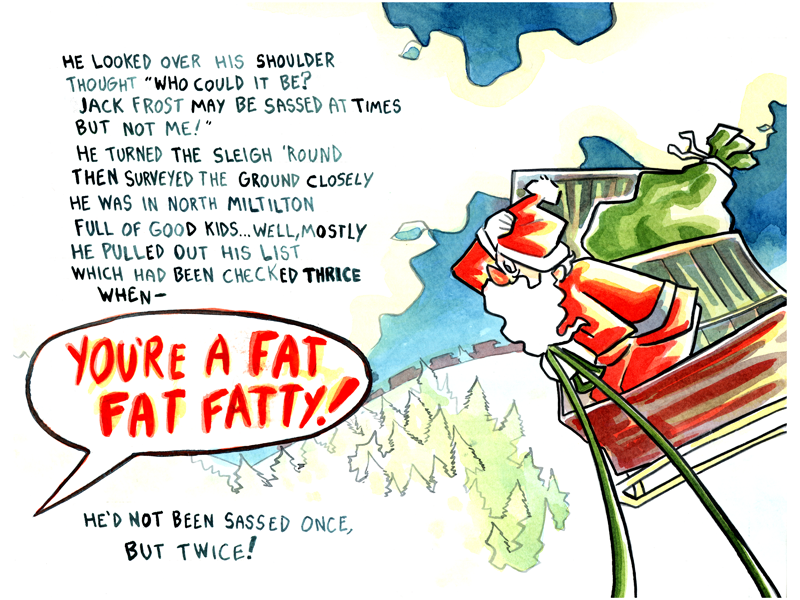 HE LOOKED OVER HIS SHOULDER
THOUGHT "WHO COULD IT BE?
JACK FROST MAY BE SASSED AT TIMES
BUT NOT ME!"
HE TURNED THE SLEIGH 'ROUND
THEN SURVEYED THE GROUND CLOSELY
HE WAS IN NORTH MILTILTON
FULL OF GOOD KIDS...WELL, MOSTLY
HE PULLED OUT HIS LIST
WHICH HAD BEEN CHECKED THRICE
WHEN—
YOU'RE A FAT
FAT FATTY!
HE'D NOT BEEN SASSED ONCE,
BUT TWICE!